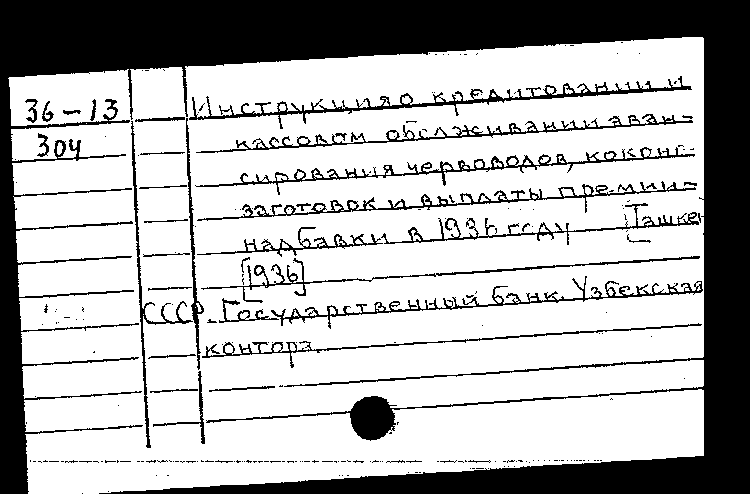 36-13
304
Инструкция о кредитовании и
кассовом обслживании аван=
сирования червоводов, коконо-
заготовок и выплаты премии=
надбавки в 1936 году [Ташкен
[1936]
СССР. Государственный банк. Узбекская
контора.